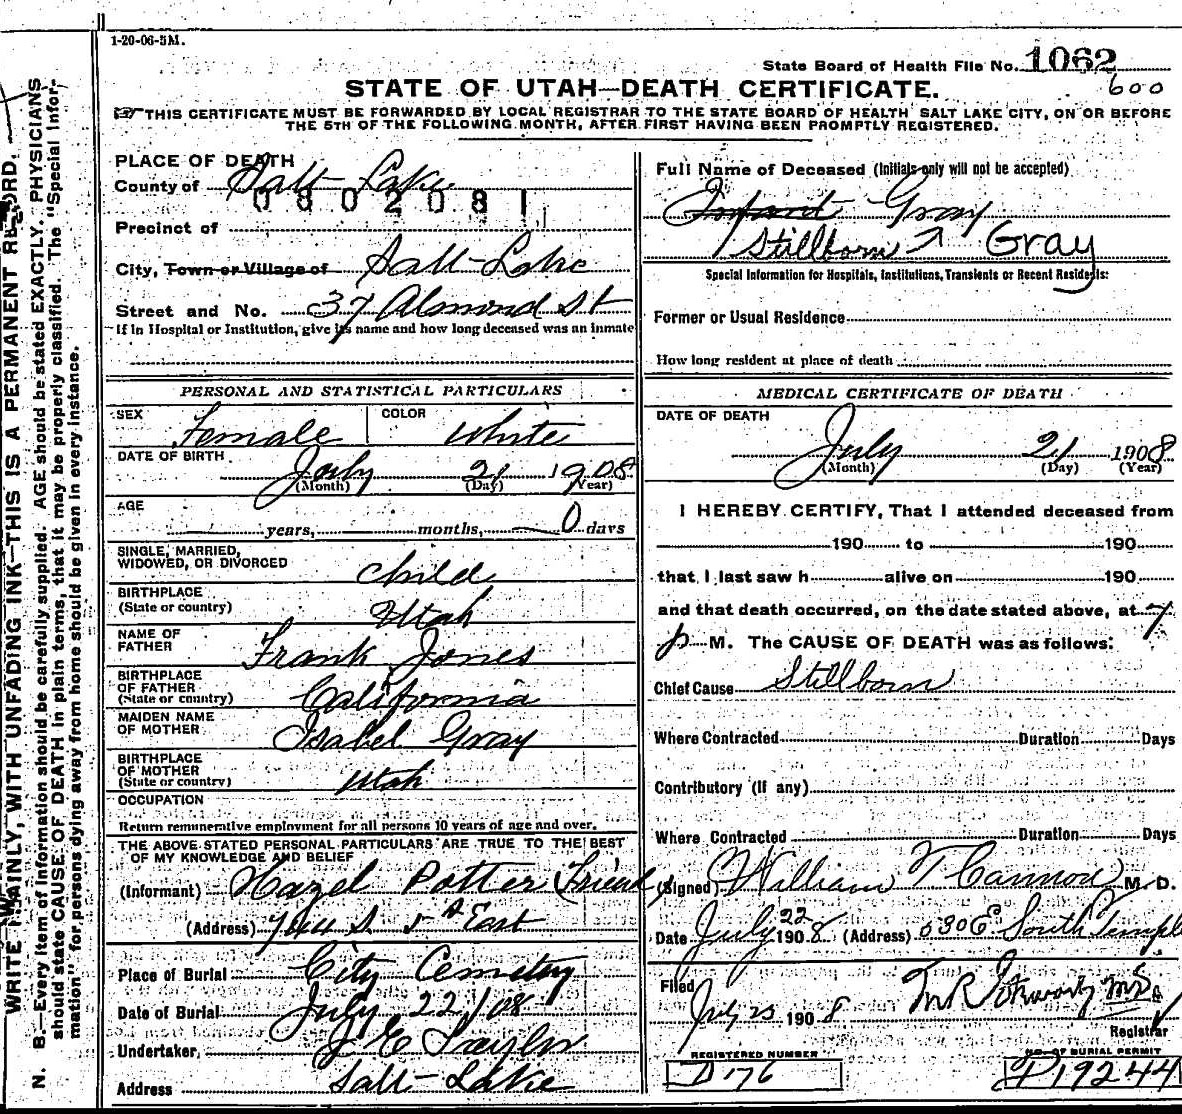 1-20-06-5M.
State Board of Health File No. 1062
600
STATE OF UTAH—DEATH CERTIFICATE.
THIS CERTIFICATE MUST BE FORWARDED BY LOCAL REGISTRAR TO THE STATE BOARD OF HEALTH SALT LAKE CITY, ON OR BEFORE
THE 5TH OF THE FOLLOWING MONTH, AFTER FIRST HAVING BEEN PROMPTLY REGISTERED.
WRITE PLAINLY, WITH UNFADING INK—THIS IS A PERMANENT RECORD.
N. B.—Every item of information should be carefully supplied. AGE should be stated EXACTLY. PHYSICIANS
should state CAUSE OF DEATH in plain terms, that it may be properly classified. The "Special Infor-
mation" for persons dying away from home should be given in every instance.
PLACE OF DEATH
County of Salt Lake
0802081
Precinct of
City, Town or Village of Salt Lake
Street and No. 37 Almond St
If in Hospital or Institution, give its name and how long deceased was an inmate
PERSONAL AND STATISTICAL PARTICULARS
SEX Female COLOR White
DATE OF BIRTH July 21 1908
(Month) (Day) (Year)
AGE
years, months, 0 days
SINGLE, MARRIED,
WIDOWED, OR DIVORCED Child
BIRTHPLACE
(State or country) Utah
NAME OF
FATHER Frank Jones
BIRTHPLACE
OF FATHER
(State or country) California
MAIDEN NAME
OF MOTHER Isabel Gray
BIRTHPLACE
OF MOTHER
(State or country) Utah
OCCUPATION
Return remunerative employment for all persons 10 years of age and over.
THE ABOVE STATED PERSONAL PARTICULARS ARE TRUE TO THE BEST
OF MY KNOWLEDGE AND BELIEF
(Informant) Hazel Potter (Friend)
(Address) 744 S. 5th East
Place of Burial City Cemetery
Date of Burial July 22/08
Undertaker, J E Taylor
Address Salt Lake
Full Name of Deceased (Initials only will not be accepted)
Infant Gray
Stillborn Gray
Special Information for Hospitals, Institutions, Transients or Recent Residents:
Former or Usual Residence
How long resident at place of death
MEDICAL CERTIFICATE OF DEATH
DATE OF DEATH
July 21 1908
(Month) (Day) (Year)
I HEREBY CERTIFY, That I attended deceased from
190 to 190
that I last saw h alive on 190
and that death occurred, on the date stated above, at 7
p M. The CAUSE OF DEATH was as follows:
Chief Cause Stillborn
Where Contracted Duration Days
Contributory (if any)
Where Contracted Duration Days
(Signed) William T Cannon M. D.
Date July 22 1908 (Address) 630 E South Temple
Filed
July 23 1908
Registrar
REGISTERED NUMBER
D 176
NO. OF BURIAL PERMIT
P19244